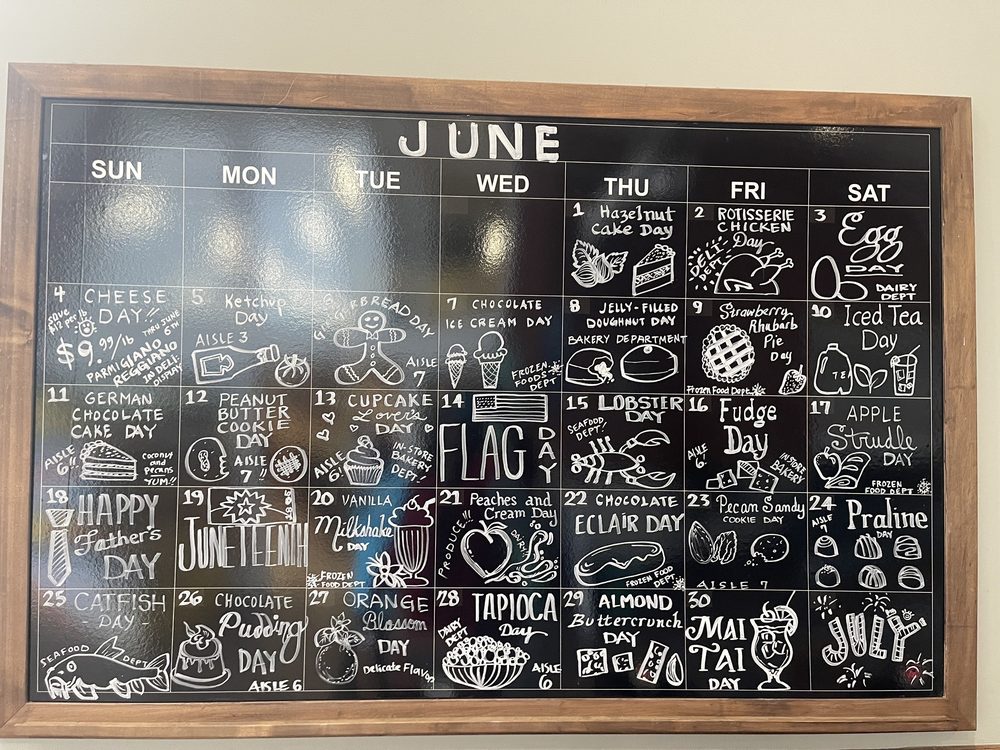 JUNE
SUN MON TUE WED THU FRI SAT
1 Hazelnut
Cake Day
2 ROTISSERIE
CHICKEN
Day
DELI
DEPT
3 Egg
DAY
DAIRY
DEPT
4 CHEESE
DAY!!
THRU JUNE
$9.99/lb
PARMIGIANO
REGGIANO
IN DELI
DISPLAY
5 Ketchup
Day
AISLE 3
RBREAD DAY
AISLE
7
7 CHOCOLATE
ICE CREAM DAY
FROZEN
FOODS
DEPT
8 JELLY-FILLED
DOUGHNUT DAY
BAKERY DEPARTMENT
9 Strawberry
Rhubarb
Pie
Day
Frozen Food Dept.
10 Iced Tea
Day
TEA
11 GERMAN
CHOCOLATE
CAKE DAY
AISLE
6!!
Coconut
and
Pecans
YUM!!
12 PEANUT
BUTTER
COOKIE
DAY
AISLE
7!!
13 CUPCAKE
Lover's
DAY
AISLE
6
IN-STORE
BAKERY
DEPT!
14
FLAG DAY
15 LOBSTER
DAY
SEAFOOD
DEPT!
16 Fudge
Day
AISLE
6
IN-STORE
BAKERY
17 APPLE
Strudle
DAY
FROZEN
FOOD DEPT
18 HAPPY
Father's
DAY
19
JUNETEENTH
20 VANILLA
Milkshake
DAY
FROZEN
FOOD DEPT
21 Peaches and
Cream Day
PRODUCE!!!
DAIRY
22 CHOCOLATE
ECLAIR DAY
FROZEN FOOD
DEPT
23 Pecan Sandy
COOKIE DAY
AISLE 7
24 Praline
DAY
AISLE
25 CATFISH
- DAY -
SEAFOOD DEPT
26 CHOCOLATE
Pudding
DAY
AISLE 6
27 ORANGE
Blossom
DAY
Delicate Flavor
28 TAPIOCA
Day
DAIRY
DEPT
AISLE
6
29 ALMOND
Buttercrunch
DAY
30
MAI
TAI
DAY
JULY